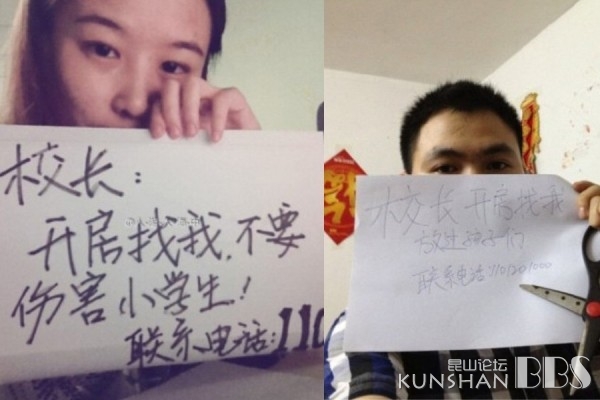 校长:
开房找我,不要
伤害小学生!
联系电话:110
校长 开房找我
放生孩子们
联系电话 110120
昆山论坛
KUNSHAN BBS